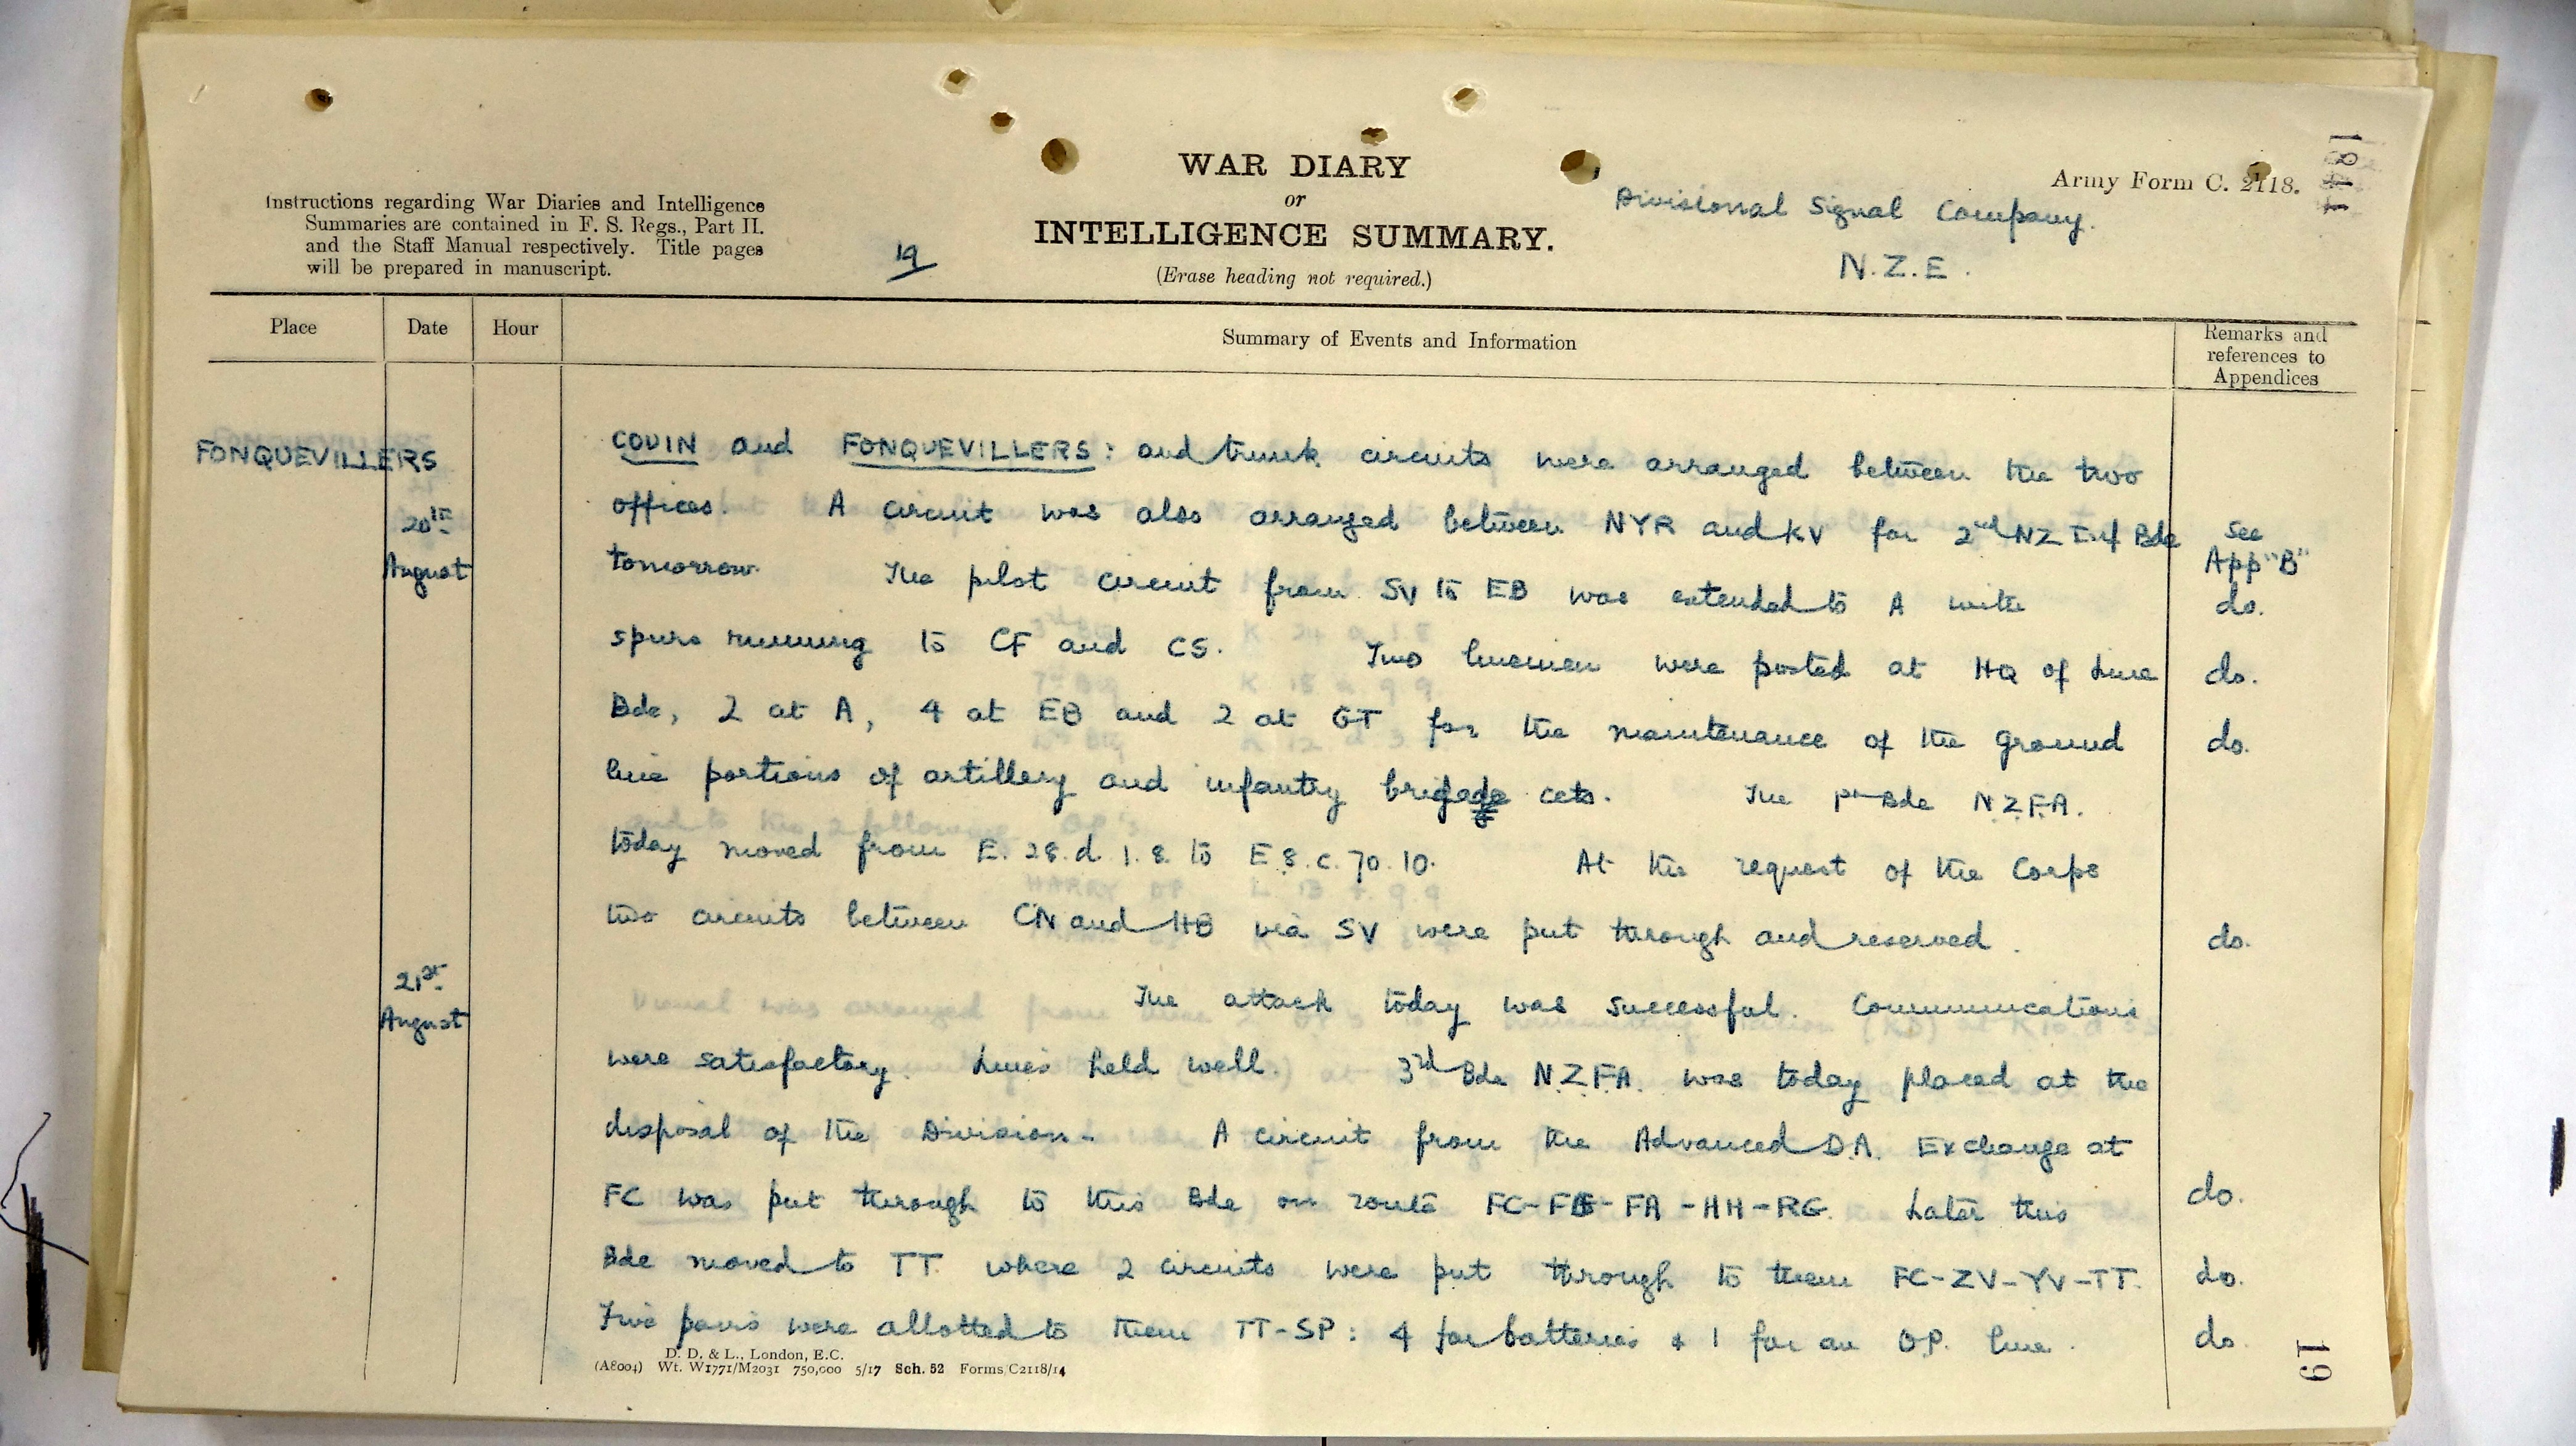 Army Form C. 2118.
1181
WAR DIARY
or
INTELLIGENCE SUMMARY.
(Erase heading not required.)
Instructions regarding War Diaries and Intelligence
Summaries are contained in F. S. Regs., Part II.
and the Staff Manual respectively. Title pages
will be prepared in manuscript.
19
Divisional Signal Company.
N.Z.E.
Place
Date
Hour
Summary of Events and Information
Remarks and
references to
Appendices
FONQUEVILLERS
20th
August
COUIN and FONQUEVILLERS: and trunk circuits were arranged between the two
offices. A circuit was also arranged between NYR and KV for 2nd NZ Inf Bde
See
App "B"
tomorrow. The pilot circuit from SV to EB was extended to A with
do.
spurs running to CF and CS. Two linemen were posted at HQ of Line
do.
Bde, 2 at A, 4 at EB and 2 at GT for the maintenance of the ground
do.
line portions of artillery and infantry brigade ccts. The 1st Bde N.Z.F.A.
today moved from E.28.d.1.8. to E.8.c.70.10. At the request of the Corps
two circuits between CN and HB via SV were put through and reserved.
do.
21st
August
The attack today was successful. Communications
were satisfactory. Lines held well. 3rd Bde N.Z.F.A. was today placed at the
disposal of the Division- A circuit from the Advanced D.A. Exchange at
FC was put through to this Bde on route FC- - FA - HH - RG. Later this
do.
Bde moved to TT. where 2 circuits were put through to them FC-ZV-YV-TT.
do.
Five pairs were allotted to them TT-SP: 4 for batteries & 1 for an O.P. line.
do
D. D. & L., London, E.C.
(A8004) Wt. W1771/M2031 750,000 5/17 Sch. 52 Forms/C2118/14
19